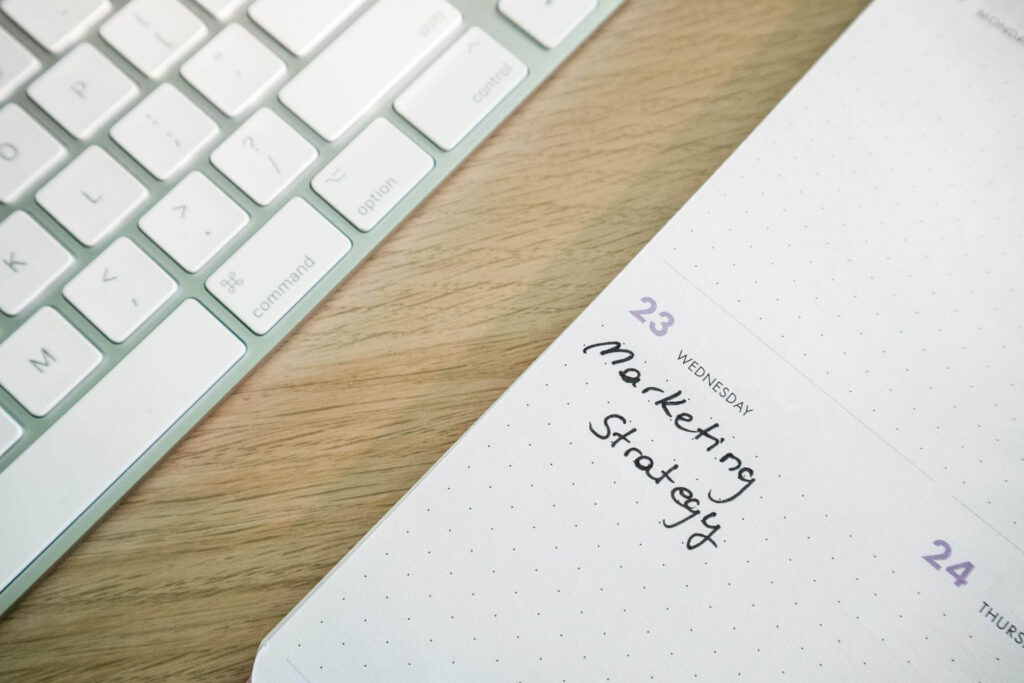 shift
control
option
command
P
O
L
K
M
?
/
>
.
<
,
⌘
23
WEDNESDAY
Marketing
Strategy
24
THURS
MONDA